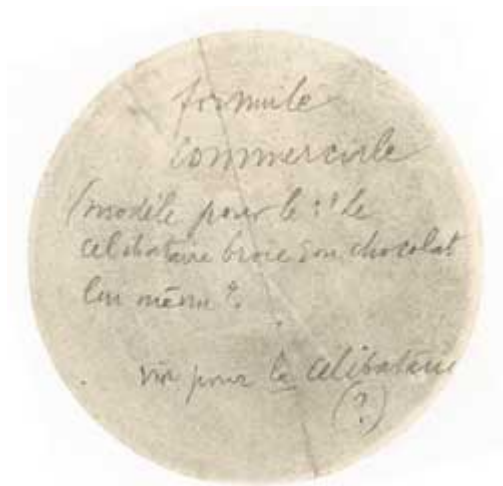 formule
commerciale
(modèle pour le : "le
célibataire broie son chocolat
lui même".
voir pour la célibataire
(?)